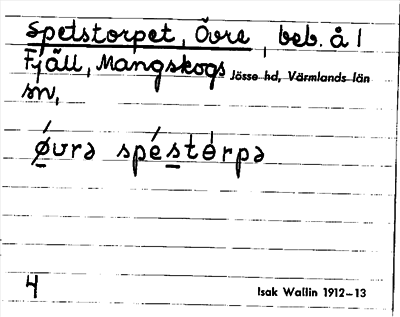 Spetstorpet, Övre, beb. å 1
Fjäll, Mangskogs Jösse hd, Värmlands län
sn,
ǿvrə spéstȯrpə
4 Isak Wallin 1912–13